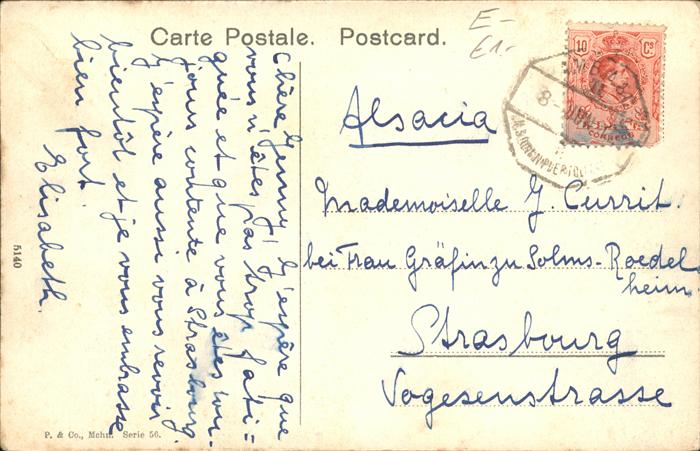 Carte Postale. Postcard.
E-
€1.-
10 Cs
CORREOS
Chère Jenny! J'espère que
vous n'êtes pas trop fati=
guée et que vous êtes tou-
jours contente à Strasbourg.
J'espère aussi vous revoir
bientôt et je vous embrasse
bien fort.
Elisabeth.
Alsacia
Mademoiselle J. Currit.
bei Frau Gräfin zu Solms-Roedel
heim.
Strasbourg
Vogesenstrasse
5140
P. & Co., Mchn. Serie 56.